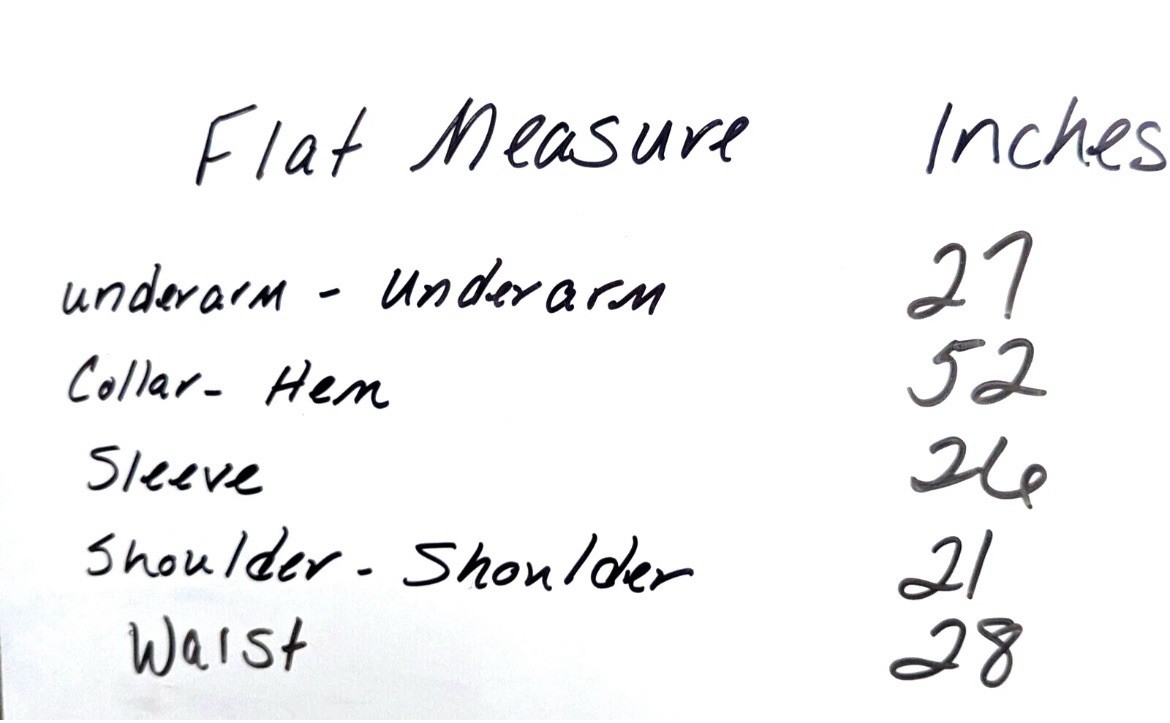 Flat Measure Inches
underarm - Underarm 27
Collar - Hem 52
Sleeve 26
Shoulder - Shoulder 21
Waist 28